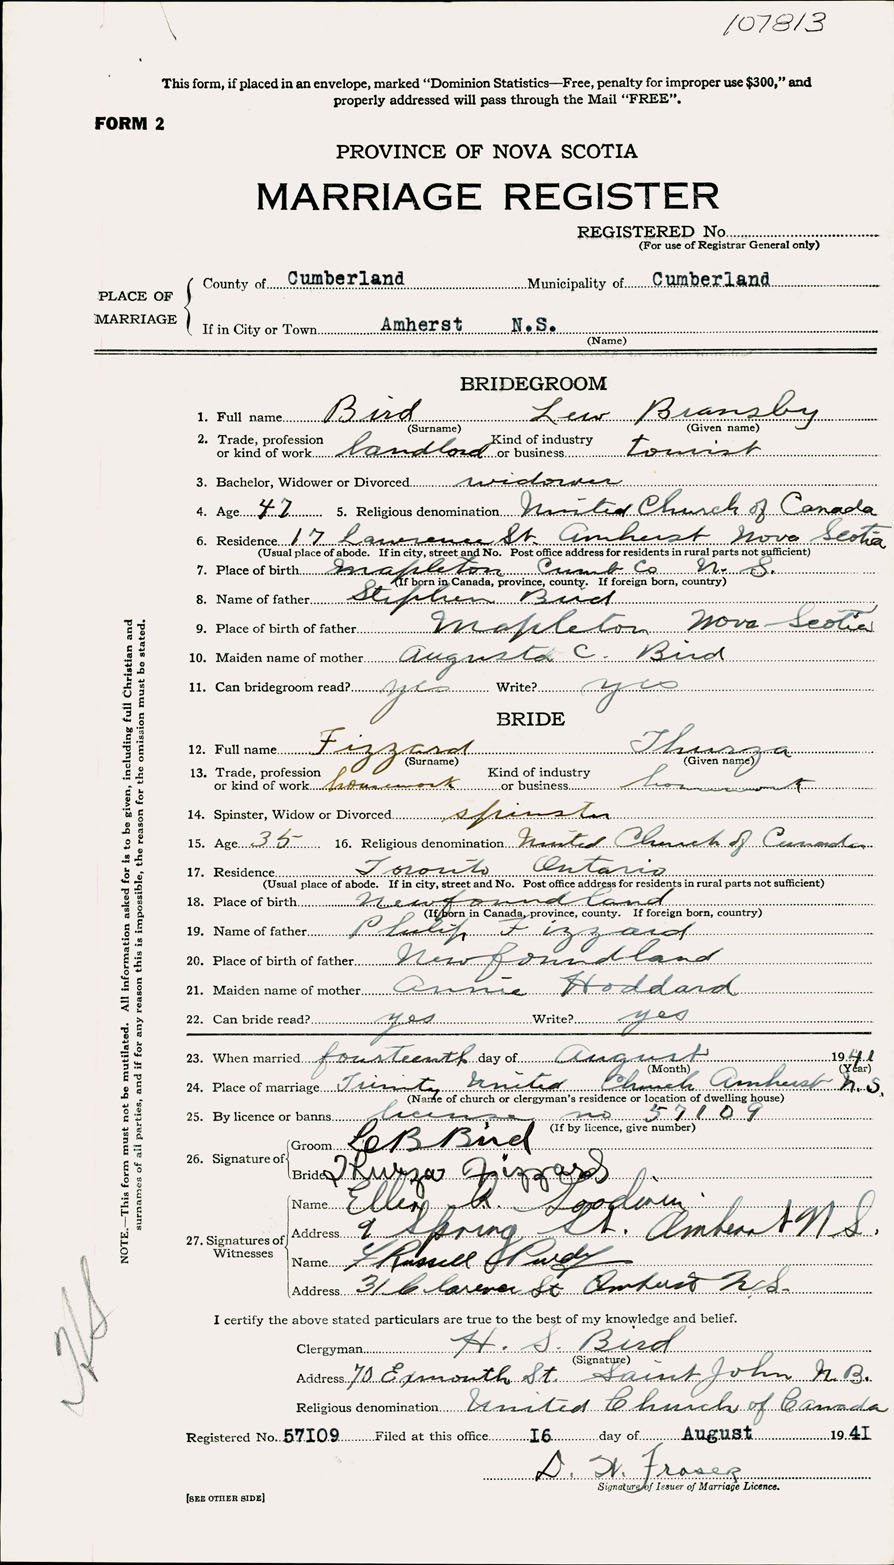 107813
This form, if placed in an envelope, marked “Dominion Statistics—Free, penalty for improper use $300,” and
properly addressed will pass through the Mail “FREE”.
FORM 2
PROVINCE OF NOVA SCOTIA
MARRIAGE REGISTER
REGISTERED No.
(For use of Registrar General only)
PLACE OF MARRIAGE
County of Cumberland Municipality of Cumberland
If in City or Town Amherst N.S.
(Name)
BRIDEGROOM
1. Full name Bird Lew Bransby
(Surname) (Given name)
2. Trade, profession or kind of work landlord Kind of industry or business tourist
3. Bachelor, Widower or Divorced widower
4. Age 47 5. Religious denomination United Church of Canada
6. Residence 17 Lawrence St. Amherst Nova Scotia
(Usual place of abode. If in city, street and No. Post office address for residents in rural parts not sufficient)
7. Place of birth Mapleton Cumb Co N. S.
(If born in Canada, province, county. If foreign born, country)
8. Name of father Stephen Bird
9. Place of birth of father Mapleton Nova Scotia
10. Maiden name of mother Augusta C. Bird
11. Can bridegroom read? yes Write? yes
BRIDE
12. Full name Fizzard Thurza
(Surname) (Given name)
13. Trade, profession or kind of work housework Kind of industry or business housework
14. Spinster, Widow or Divorced spinster
15. Age 35 16. Religious denomination United Church of Canada
17. Residence Toronto Ontario
(Usual place of abode. If in city, street and No. Post office address for residents in rural parts not sufficient)
18. Place of birth Newfoundland
(If born in Canada, province, county. If foreign born, country)
19. Name of father Philip Fizzard
20. Place of birth of father Newfoundland
21. Maiden name of mother Annie Hoddard
22. Can bride read? yes Write? yes
23. When married fourteenth day of August 1941
(Month) (Year)
24. Place of marriage Trinity United Church Amherst N.S.
(Name of church or clergyman's residence or location of dwelling house)
25. By licence or banns license no 57109
(If by licence, give number)
26. Signature of Groom L B Bird
Bride Thurza Fizzard
27. Signatures of Witnesses
Name Ellen R. Goodwin
Address 9 Spring St. Amherst N S.
Name Russell Purdy
Address 31 Clarence St Amherst N.S.
I certify the above stated particulars are true to the best of my knowledge and belief.
Clergyman H. S. Bird
(Signature)
Address 70 Exmouth St. Saint John N. B.
Religious denomination United Church of Canada
Registered No. 57109 Filed at this office 16 day of August 1941
D. W. Fraser
Signature of Issuer of Marriage Licence.
[SEE OTHER SIDE]
NOTE.—This form must not be mutilated. All information asked for is to be given, including full Christian and
surnames of all parties, and if for any reason this is impossible, the reason for the omission must be stated.